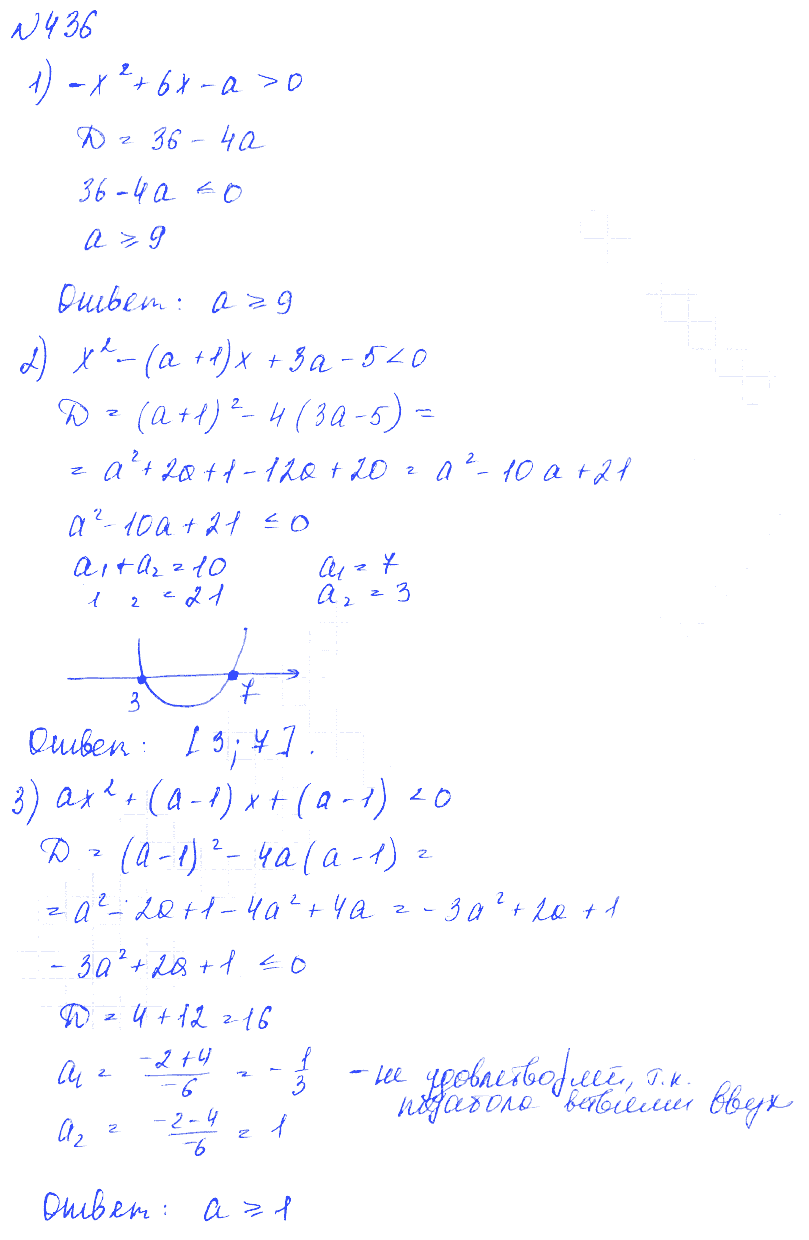 N436
1) -x² + 6x - a > 0
D = 36 - 4a
36 - 4a ≤ 0
a ≥ 9
Ответ: a ≥ 9
2) x² - (a + 1)x + 3a - 5 < 0
D = (a+1)² - 4(3a-5) =
= a² + 2a + 1 - 12a + 20 = a² - 10a + 21
a² - 10a + 21 ≤ 0
a₁ + a₂ = 10 a₁ = 7
₁ ₂ = 21 a₂ = 3
3 7
Ответ: [3; 7].
3) ax² + (a-1)x + (a-1) < 0
D = (a-1)² - 4a(a-1) =
= a² - 2a + 1 - 4a² + 4a = -3a² + 2a + 1
-3a² + 2a + 1 ≤ 0
D = 4 + 12 = 16
a₁ = (-2+4)/(-6) = -1/3 - не удовлетвор. усл., т.к.
парабола ветвями вверх
a₂ = (-2-4)/(-6) = 1
Ответ: a ≥ 1